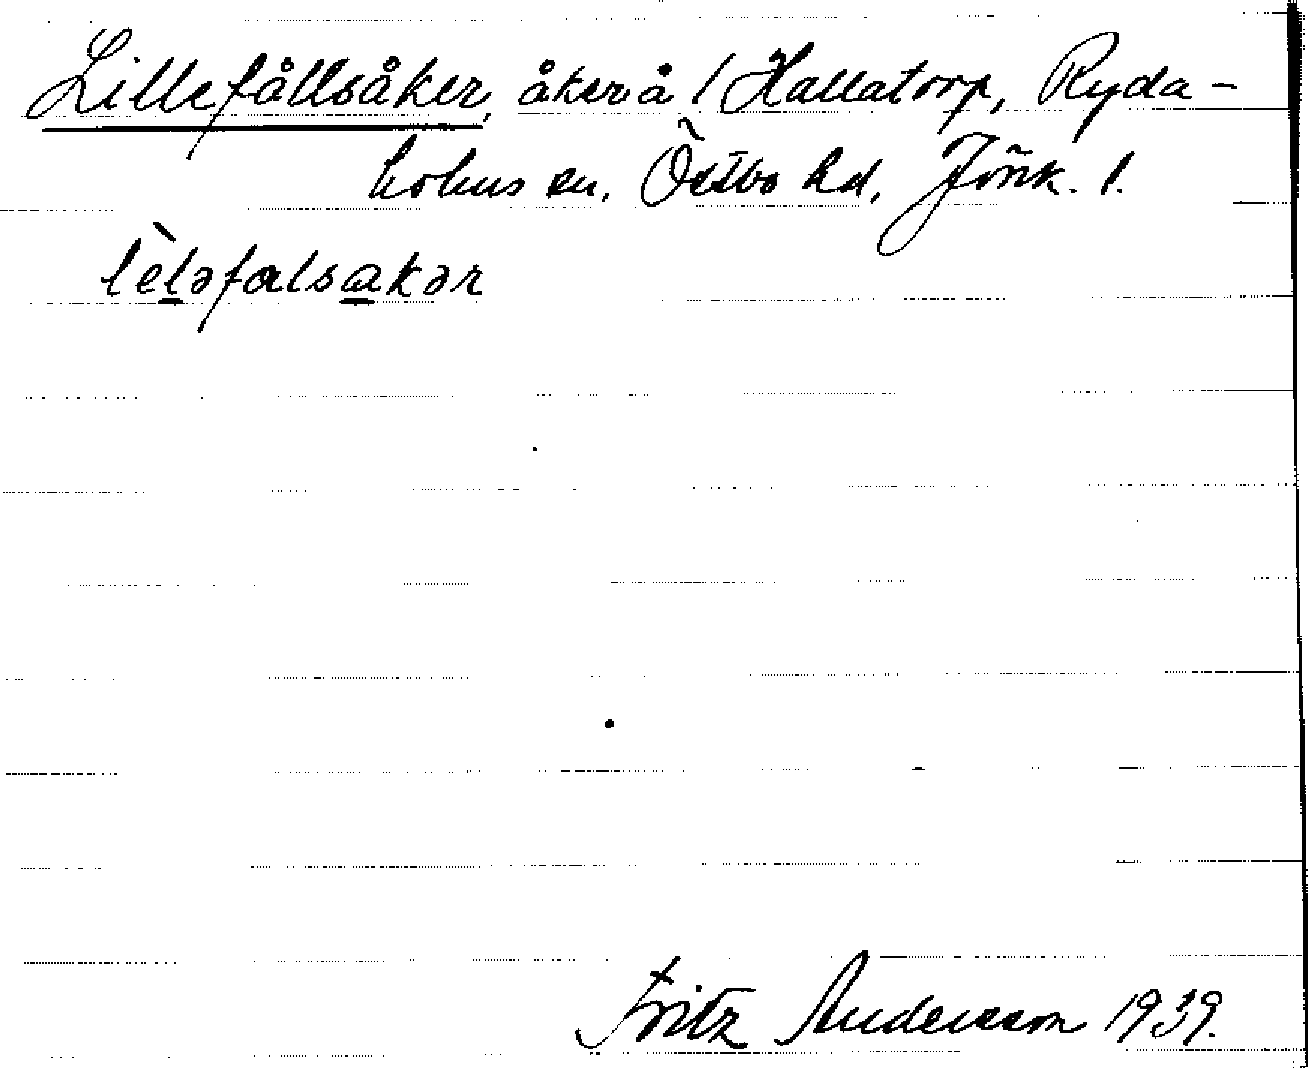 Lillefållsåker, åker å / Hallatorp, Ryda-
holms sn. Östbo hd, Jönk. l.
lèləfalsakər
Fritz Andersson 1939.